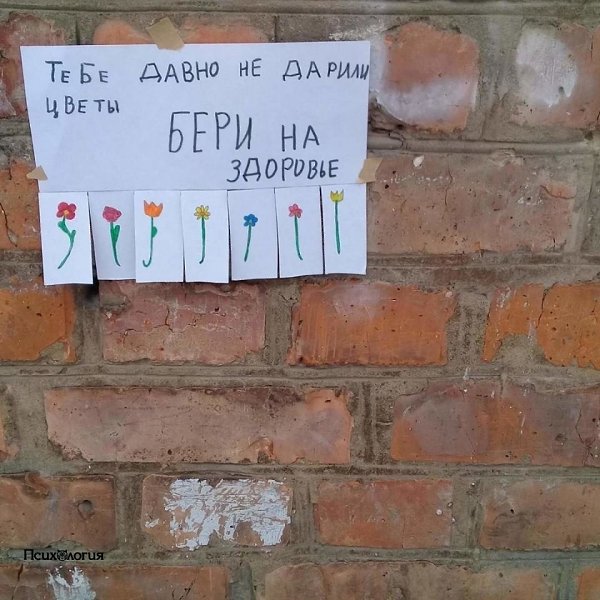 ТЕБЕ ДАВНО НЕ ДАРИЛИ
ЦВЕТЫ
БЕРИ НА
ЗДОРОВЬЕ
Психология